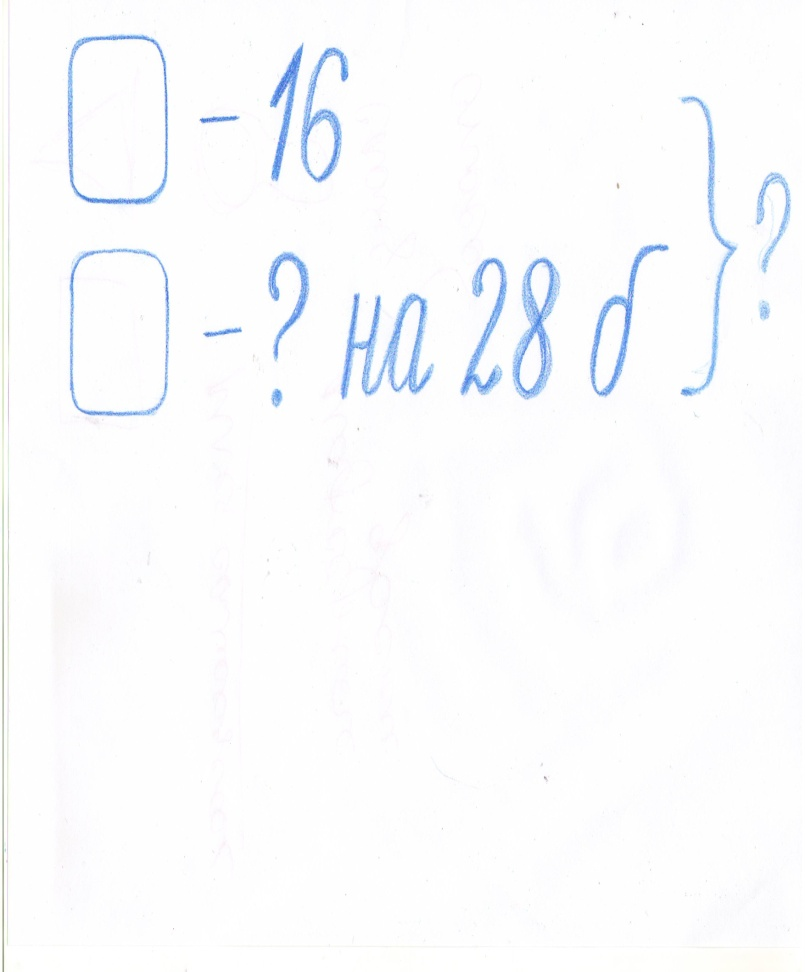 – 16
– ? на 28 б
} ?